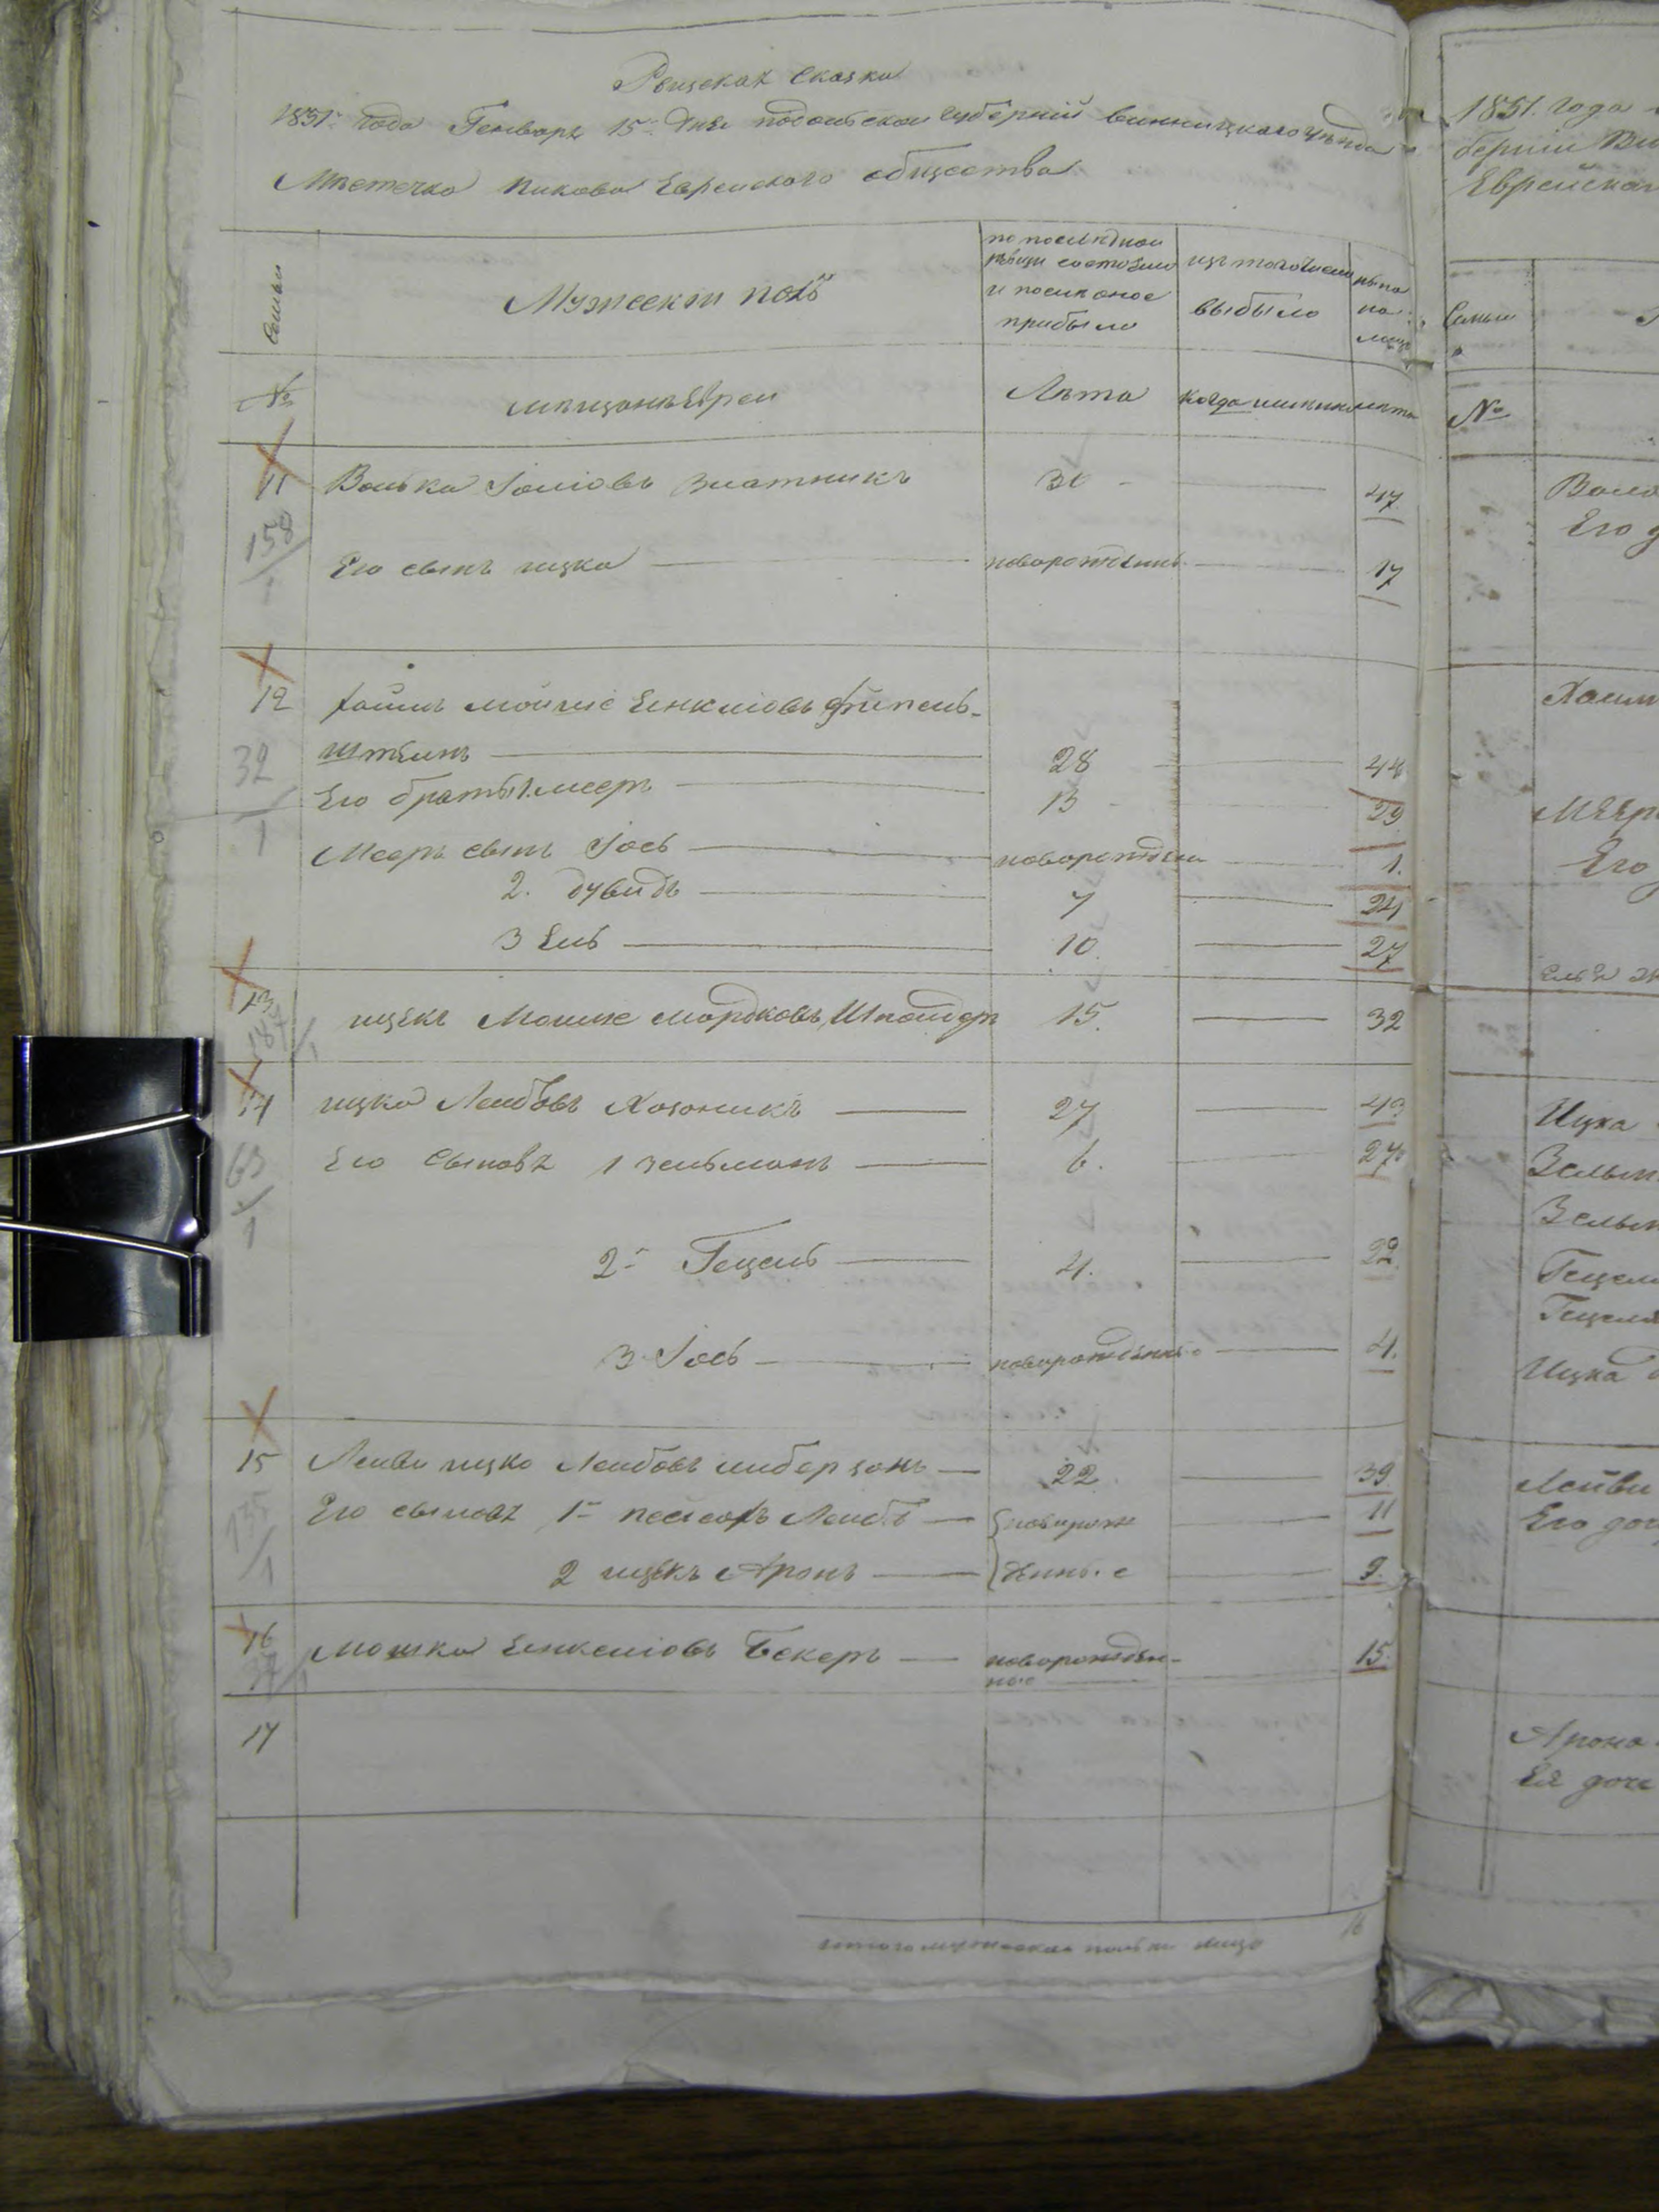 Ревизская Сказка
1851 года Генваря 15 дня Подольской губерний Винницкого уезда
Мъстечко Пикова Еврейского общества
Семьи
Мужескій полъ
по последной ревизи состояло и после оное прибыло
изъ того числа выбыло
ныне на лицо
№
мещанъ Евреи
Лета
когда именно
лета
11 Волька Іоліовъ Златникъ 30 47
158/1
Его сынъ ицко новорожденный 17
12 Хаимъ Мойше Енкліовъ
штеинъ 28 44
32/1
Его братья 1. мееръ 13 29
Меера сынъ Іось новорожден 1.
2. Дувидъ 7 24
3 Ель 10. 27
13 ицекъ Мошке Мордковъ Шпайдеръ 15. 32
14 ицко Лейбовъ Хазоникъ 27 43
63/1
Его Сыновя 1 Зельманъ 6. 23
2 Гецель 4. 22
3 Іось новорожденные 4.
15 Лейви ицко Лейбовъ либерзонъ 22 39
135/1
Его сыновя 1 пейсахъ Лейбъ новорож 11
2 ицекъ Аронъ денные 9.
16 Мошко Енкеліовъ Бекеръ новорожден- 15.
ное
17
итого мужеска полу на лицо 16
1851. года
берніи Ви
Еврейскаго
Семьи
№
Волько
Его д
Хаим
Меера
Его
Ицка
Зельм
Зельм
Гецеля
Гецеля
Ицка д
Лейви
Его доч
Арона
Ея доче